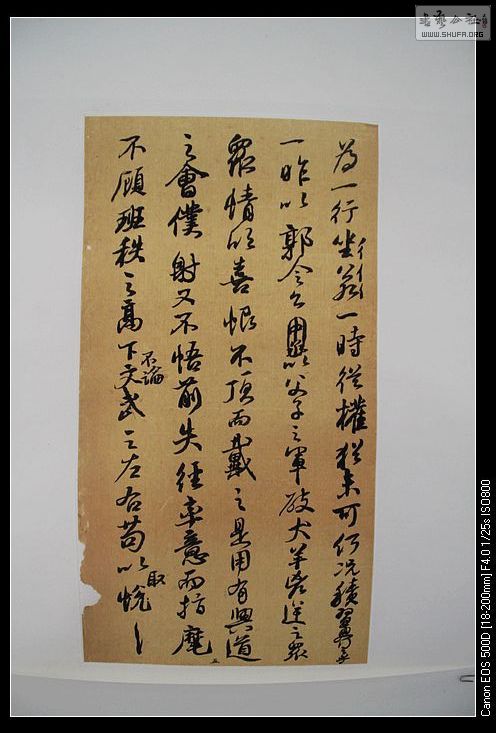 書藝公社
WWW.SHUFA.ORG
為一行坐若一時從權猶未可何況積習
一昨以郭令公以父子之軍破犬羊凶逆之眾
眾情欣喜恨不頂而戴之是用有興道
之會僕射又不悟前失徑率意而指麾
不顧班秩之高下不論文武之左右苟以取悅
Canon EOS 500D [18-200mm] F4.0 1/25s ISO800